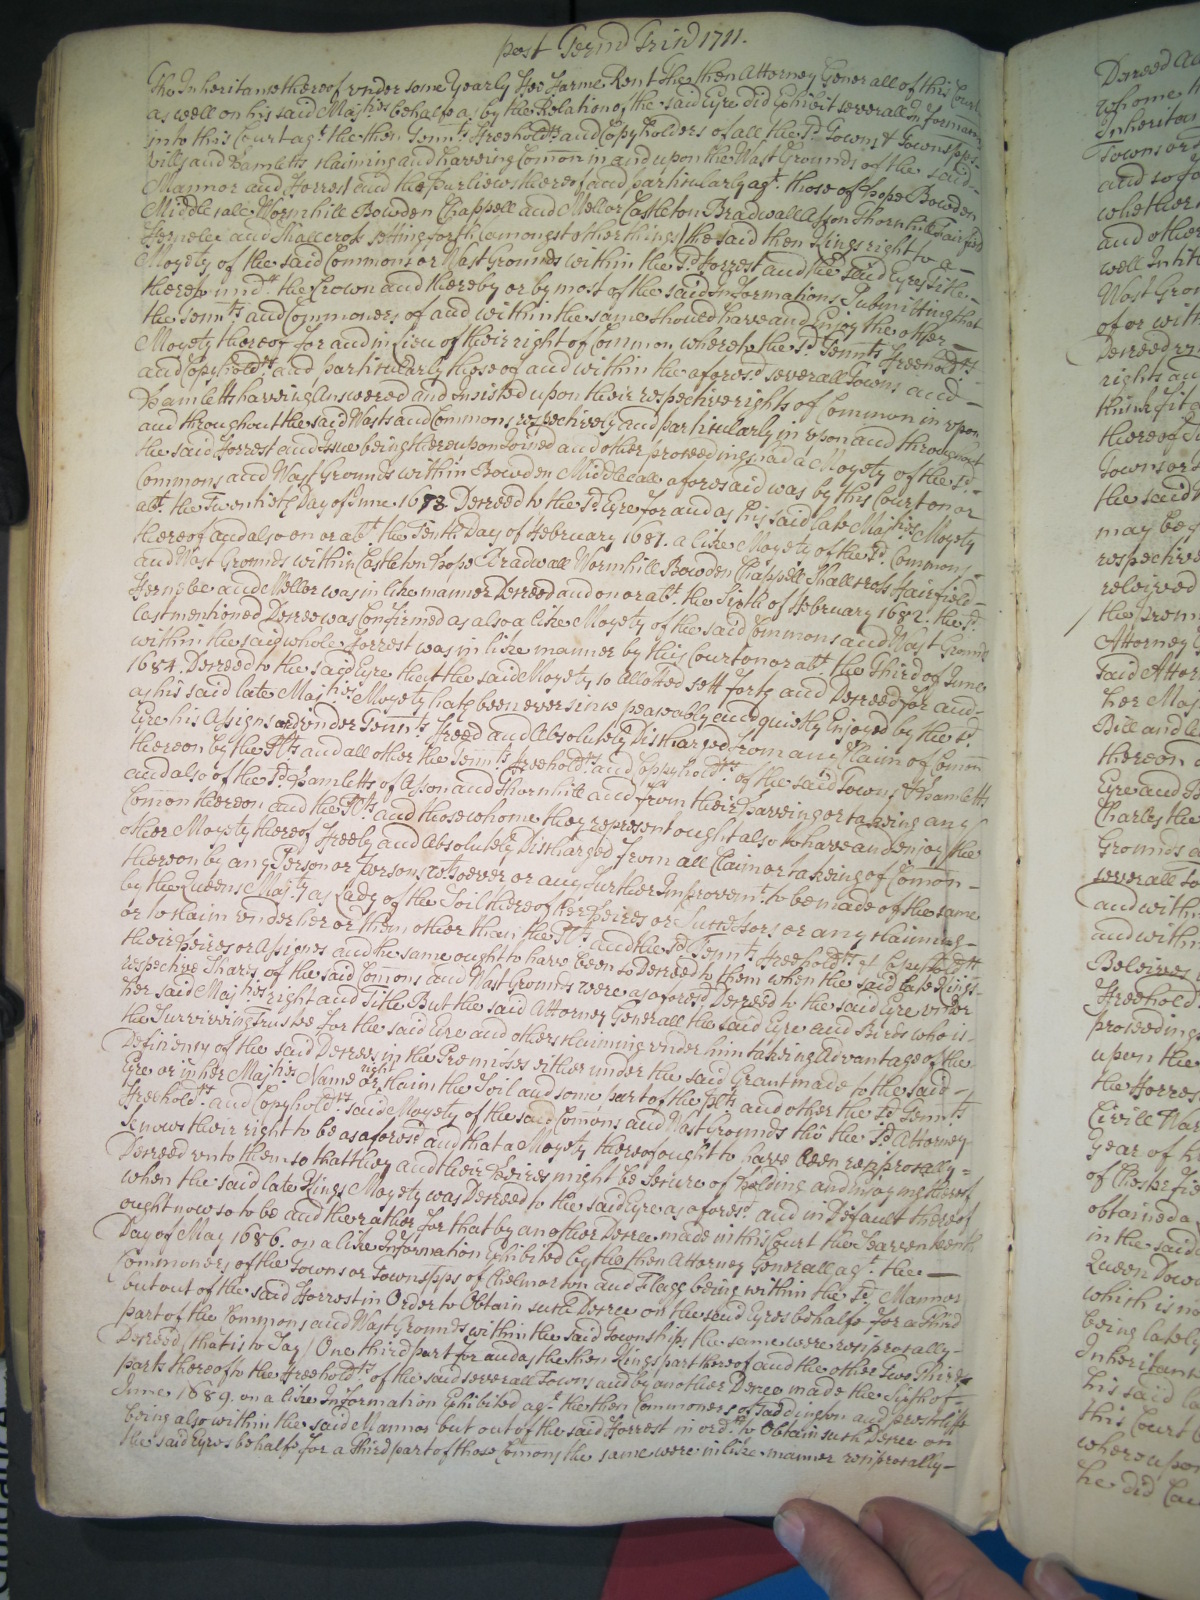 post Term Trin 1711.
The Inheritance thereof vnder some Yearly Fee Farme Rent the then Attorney Generall of this Court
as well on his said Majties behalfe as by the Relation of the said Eyre did Exhibit severall Informacons
into this Court agt the then Tennts Freeholdrs and Copyholders of all the sd Towns & Townspps
vills and Hamletts claiming and haveing Comon in and upon the Wast Grounds of the said
Mannor and Forrest and the Purliews thereof and particularly agt. those of Hope Bowden
Middlecale Wormhill Bowden Chappell and Mellor Castleton Bradwall Aston Thornhill Fairfeild
Fernelee and Shallcross setting forth (amongst other things) the said then Kings right to a
Moyety of the said Commons or Wast Grounds within the sd Forrest and the said Eyres Title
thereto undr. the Crown and thereby or by most of the said Informations Submitting that
the Tennts and Commoners of and within the same should have and Enjoy the other
Moyety thereof for and in Lieu of their right of Common whereto the sd Tennts Freeholdrs
and Copyholdrs. and particularly those of and within the aforesd severall Towns and
Hamletts haveing Answered and insisted upon their respective rights of Common in upon
and throughout the said Wasts and Commons respectively and particularly in vpon and throughout
the said Forrest and Issue being thereupon Joined and other proceedings had a Moyety of the sd.
Commons and Wast Grounds within Bowden Middlecale aforesaid was by this Court on or
abt. the Twentieth Day of June 1678 Decreed to the sd Eyre for and as his said late Majties Moyety
thereof and also on or abt the Tenth Day of February 1681. a like Moyety of the sd Commons
and Wast Grounds within Castleton Hope Bradwall Wormhill Bowden Chappell Shallcross Fairfield
Fernelee and Mellor was in like manner Decreed and on or abt. the Sixth of February 1682. the sd.
last mentioned Decree was Confirmed as also a like Moyety of the said Commons and Wast Grounds
within the said whole Forrest was in like manner by this Court on or abt the Third of June
1684. Decreed to the said Eyre that the said Moyety so allotted sett forth and Decreed for and
as his said late Majties Moyety hath been ever since peaceably and quietly Enjoyed by the sd.
Eyre his Assigns and vnder Tennts freed and absolutely Discharged from any Claim of Comon
thereon by the Plts and all other the Tennts Freeholdrs and Coppyholdrs of the said Towns & Hamletts
and also of the sd Hamletts of Aston and Thornhill and from their haveing or takeing any
Comon thereon and the Plts and those whome they represent ought also to have and enjoy the
other Moyety thereof Freely and absolutely Discharged from all Claim or takeing of Comon
thereon by any Person or Persons wtsoever or any further Improvemt to be made of the same
by the Queens Majty as Lady of the Soil thereof her Heires or Successors or any claiming
or to claim vnder her or them other than the Plts and the sd Tennts Freeholdrs et Copyholdrs
their Heires or Assignes and the same ought to have been so Decreed to them when the said late Kings
respective Shares of the said Comons and Wast Grounds were as aforesd Decreed to the said Eyre vnder
her said Majties right and Title But the said Attorney Generall the said Eyre and Birds who is
the Surviveing Trustee for the said Eyre and others claiming vnder him takeing advantage of the
Deficiency of the said Decrees in the Premisses either under the said Grant made to the said
Eyre or in her Majties Name or right claim the Soil and some part of the Plts and other the sd Tennts
Freeholdrs. and Copyholdrs said Moyety of the said Comons and Wast Grounds tho the sd Attorney
knows their right to be as aforesd and that a Moyety thereof ought to have been reciprocally
Decreed vnto them so that they and their Heires might be secure of holding and injoying thereof
when the said late Kings Moyety was Decreed to the said Eyre as aforesd. and in Default thereof
ought now so to be and the rather for that by another Decree made in this Court the Seaventeenth
Day of May 1686. on a like Information Exhibited by the then Attorney Generall agt. the
Commoners of the Towns or Townshpps of Chelmorton and Flagg being within the sd Mannor
but out of the said Forrest in Order to Obtain such Decree on the said Eyres behalfe for a Third
part of the Commons and Wast Grounds within the said Townships the same were reciprocally
Decreed (that is to Say) One third part for and as the then Kings part thereof and the other Two Third
parts thereof to the Freeholdrs of the said severall Towns and by another Decree made the Sixth of
June 1689. on a like Information Exhibited agt the then Commoners of Taddington and Preistcliffe
being also within the said Mannor but out of the said Forrest in ordr to Obtain such Decree on
the said Eyres behalfe for a Third part of those Comons the same were in like manner reciprocally